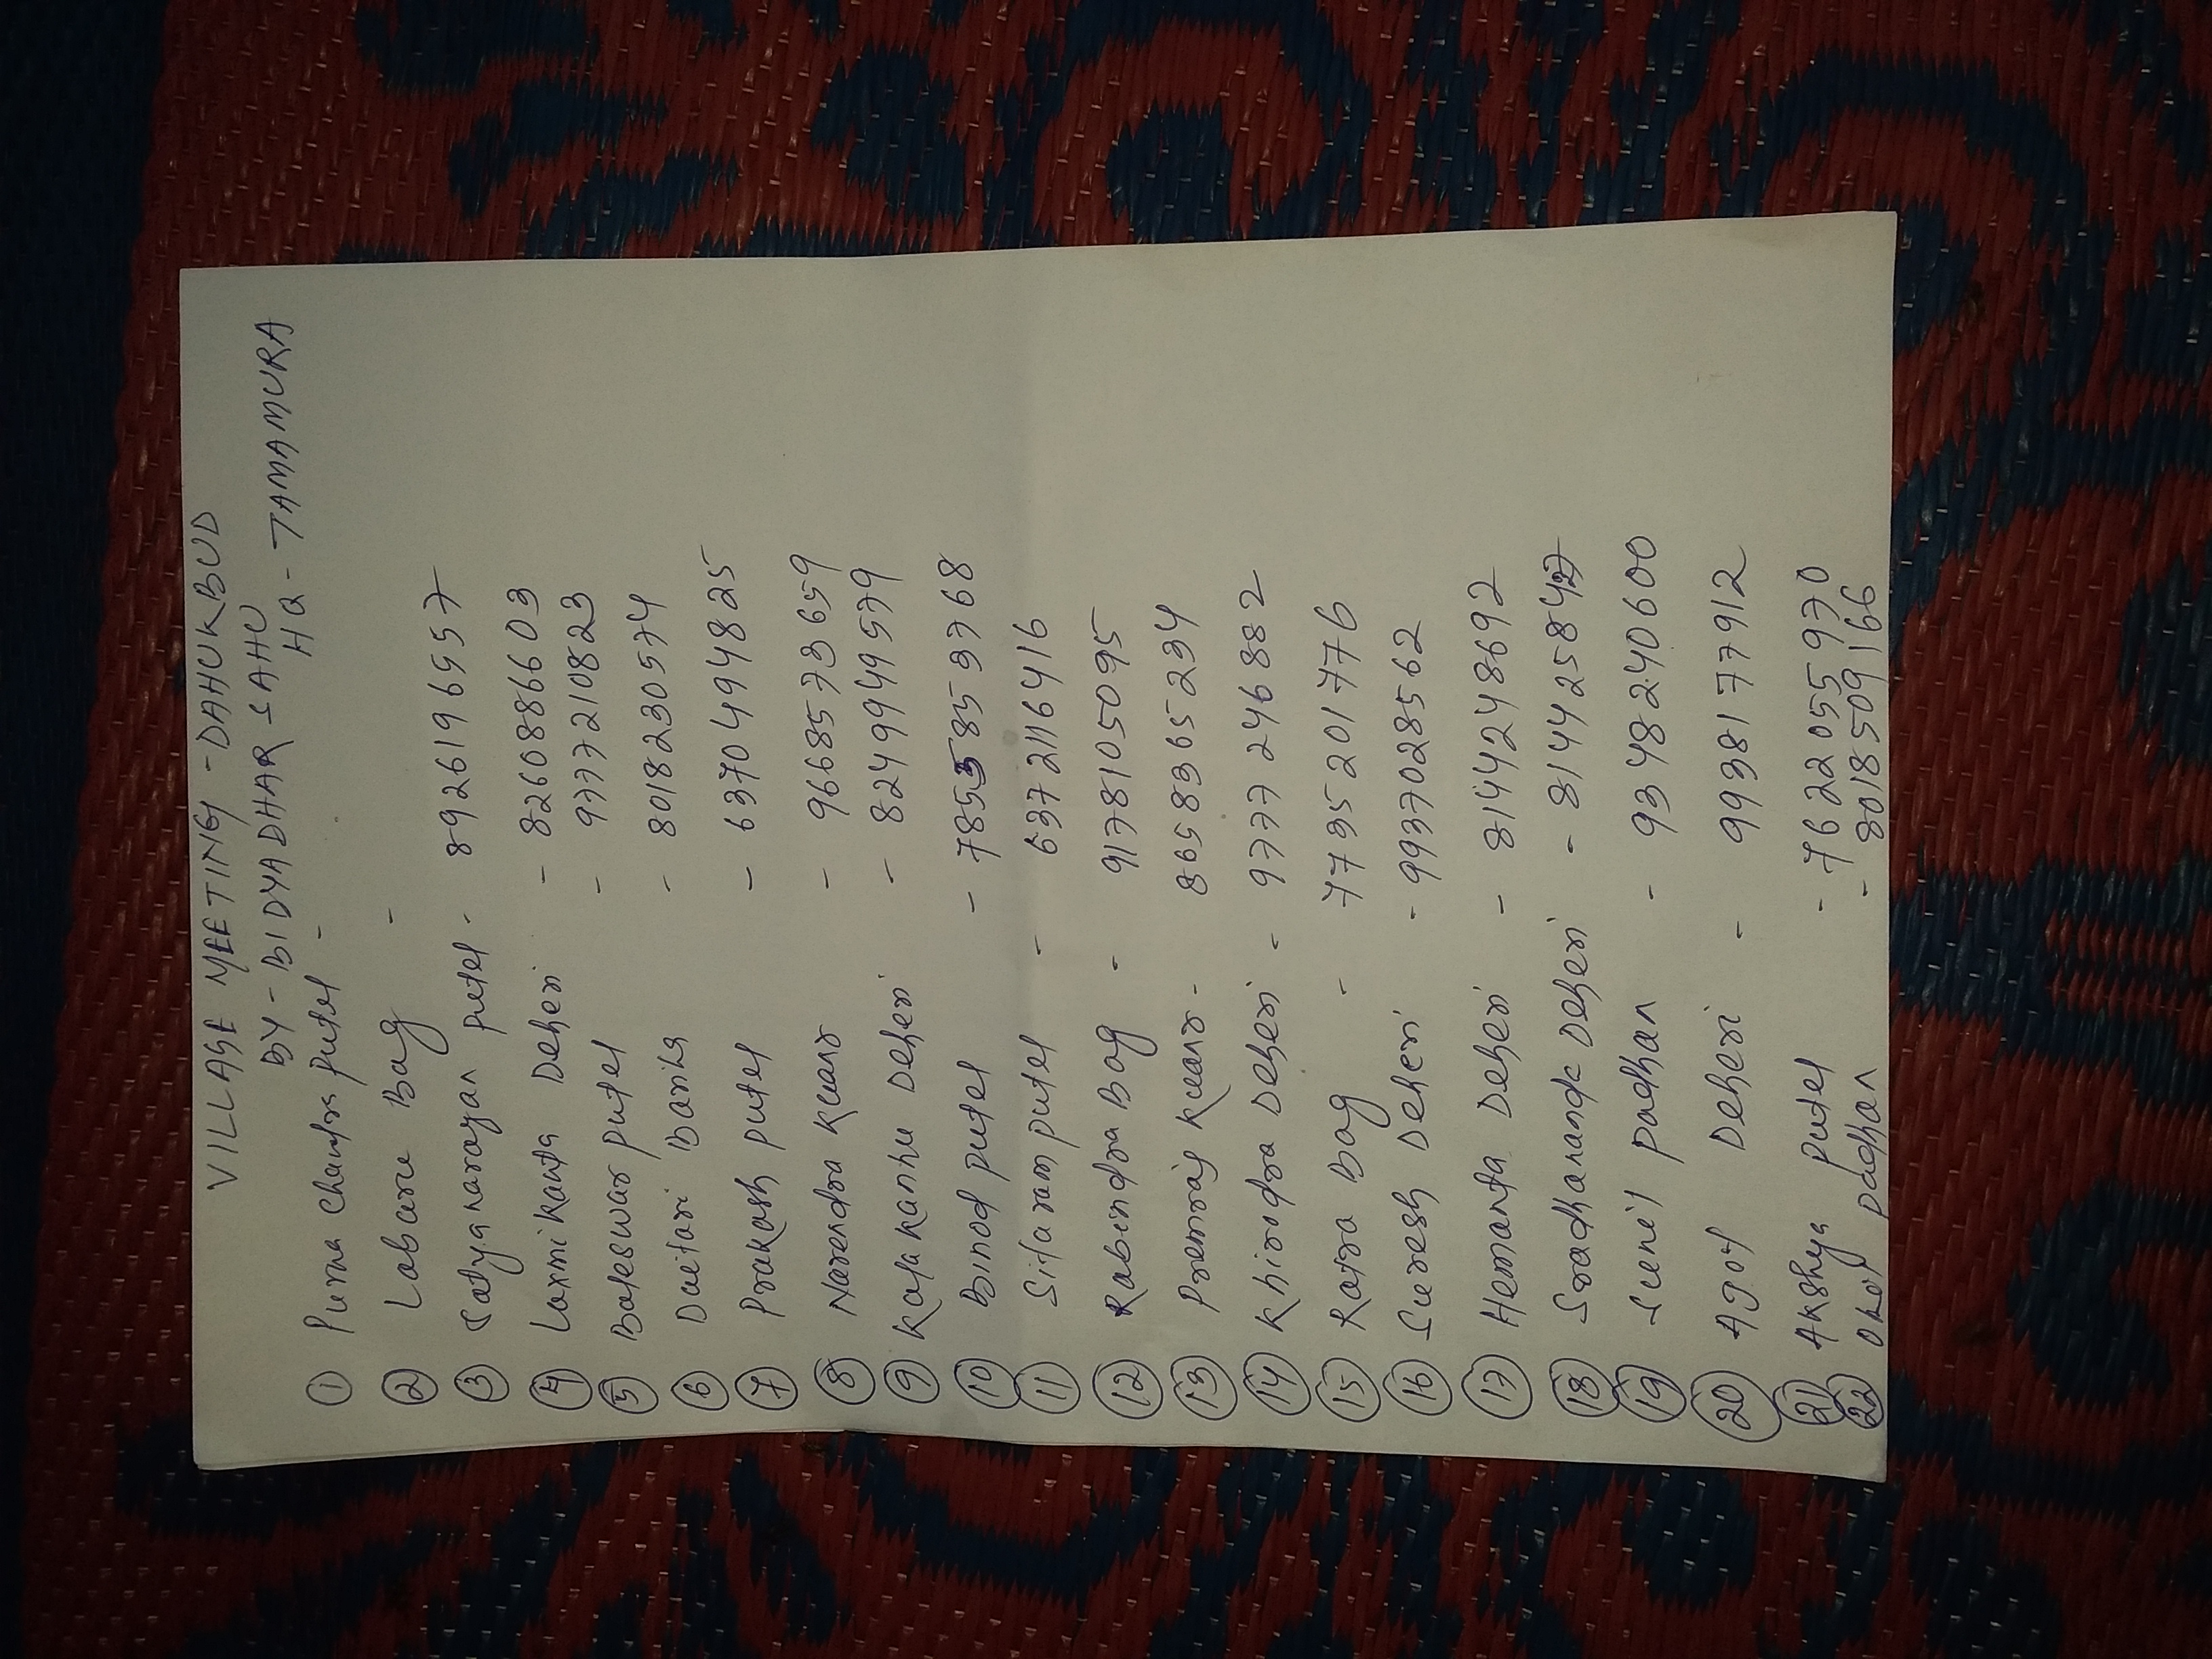 VILLAGE MEETING - DAHUKBUD
BY - BIDYADHAR SAHU
HQ - TAMAMURA
① Purna Chandra putel -
② Labaru Bag -
③ Satyanarayan putel - 8926196557
④ Laxmikanta Deheri - 8260886603
⑤ Baleswar putel - 9777210823
⑥ Daitari Barika - 8018230574
⑦ Prakash putel - 6370494825
⑧ Narendra Kuanr - 9668573659
⑨ Kalakanhu Deheri - 8249949579
⑩ Binod putel - 7855853768
⑪ Sitaram putel - 6372116416
⑫ Rabindra Bag - 9178105095
⑬ Premraj Kuanr - 8658365234
⑭ Khirodra Deheri - 9777246882
⑮ Ratra Bag - 7735201776
⑯ Suresh Deheri - 9937028562
⑰ Hemanta Deheri - 8144248692
⑱ Sradhananda Deheri - 81442584
⑲ Sunil padhan - 9348240600
⑳ Deheri - 9938177912
㉑ Akshya putel - 7622055970
㉒ padhan - 8018509166